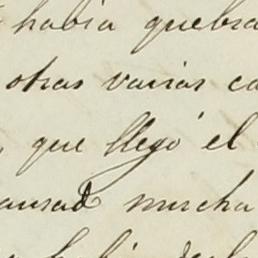 habia quebra
otras varias ca
, que llegó el
ausad mucha